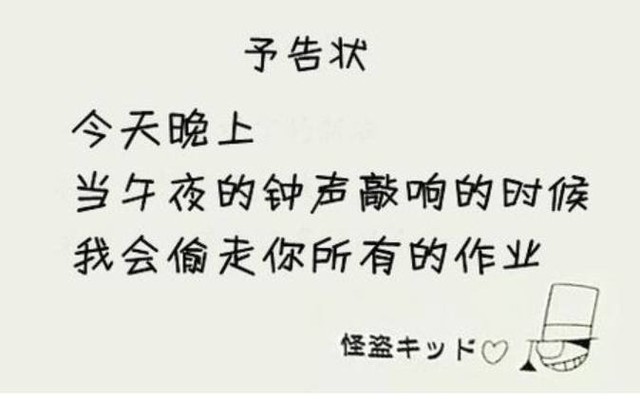 予告状
今天晚上
当午夜的钟声敲响的时候
我会偷走你所有的作业
怪盗キッド♡